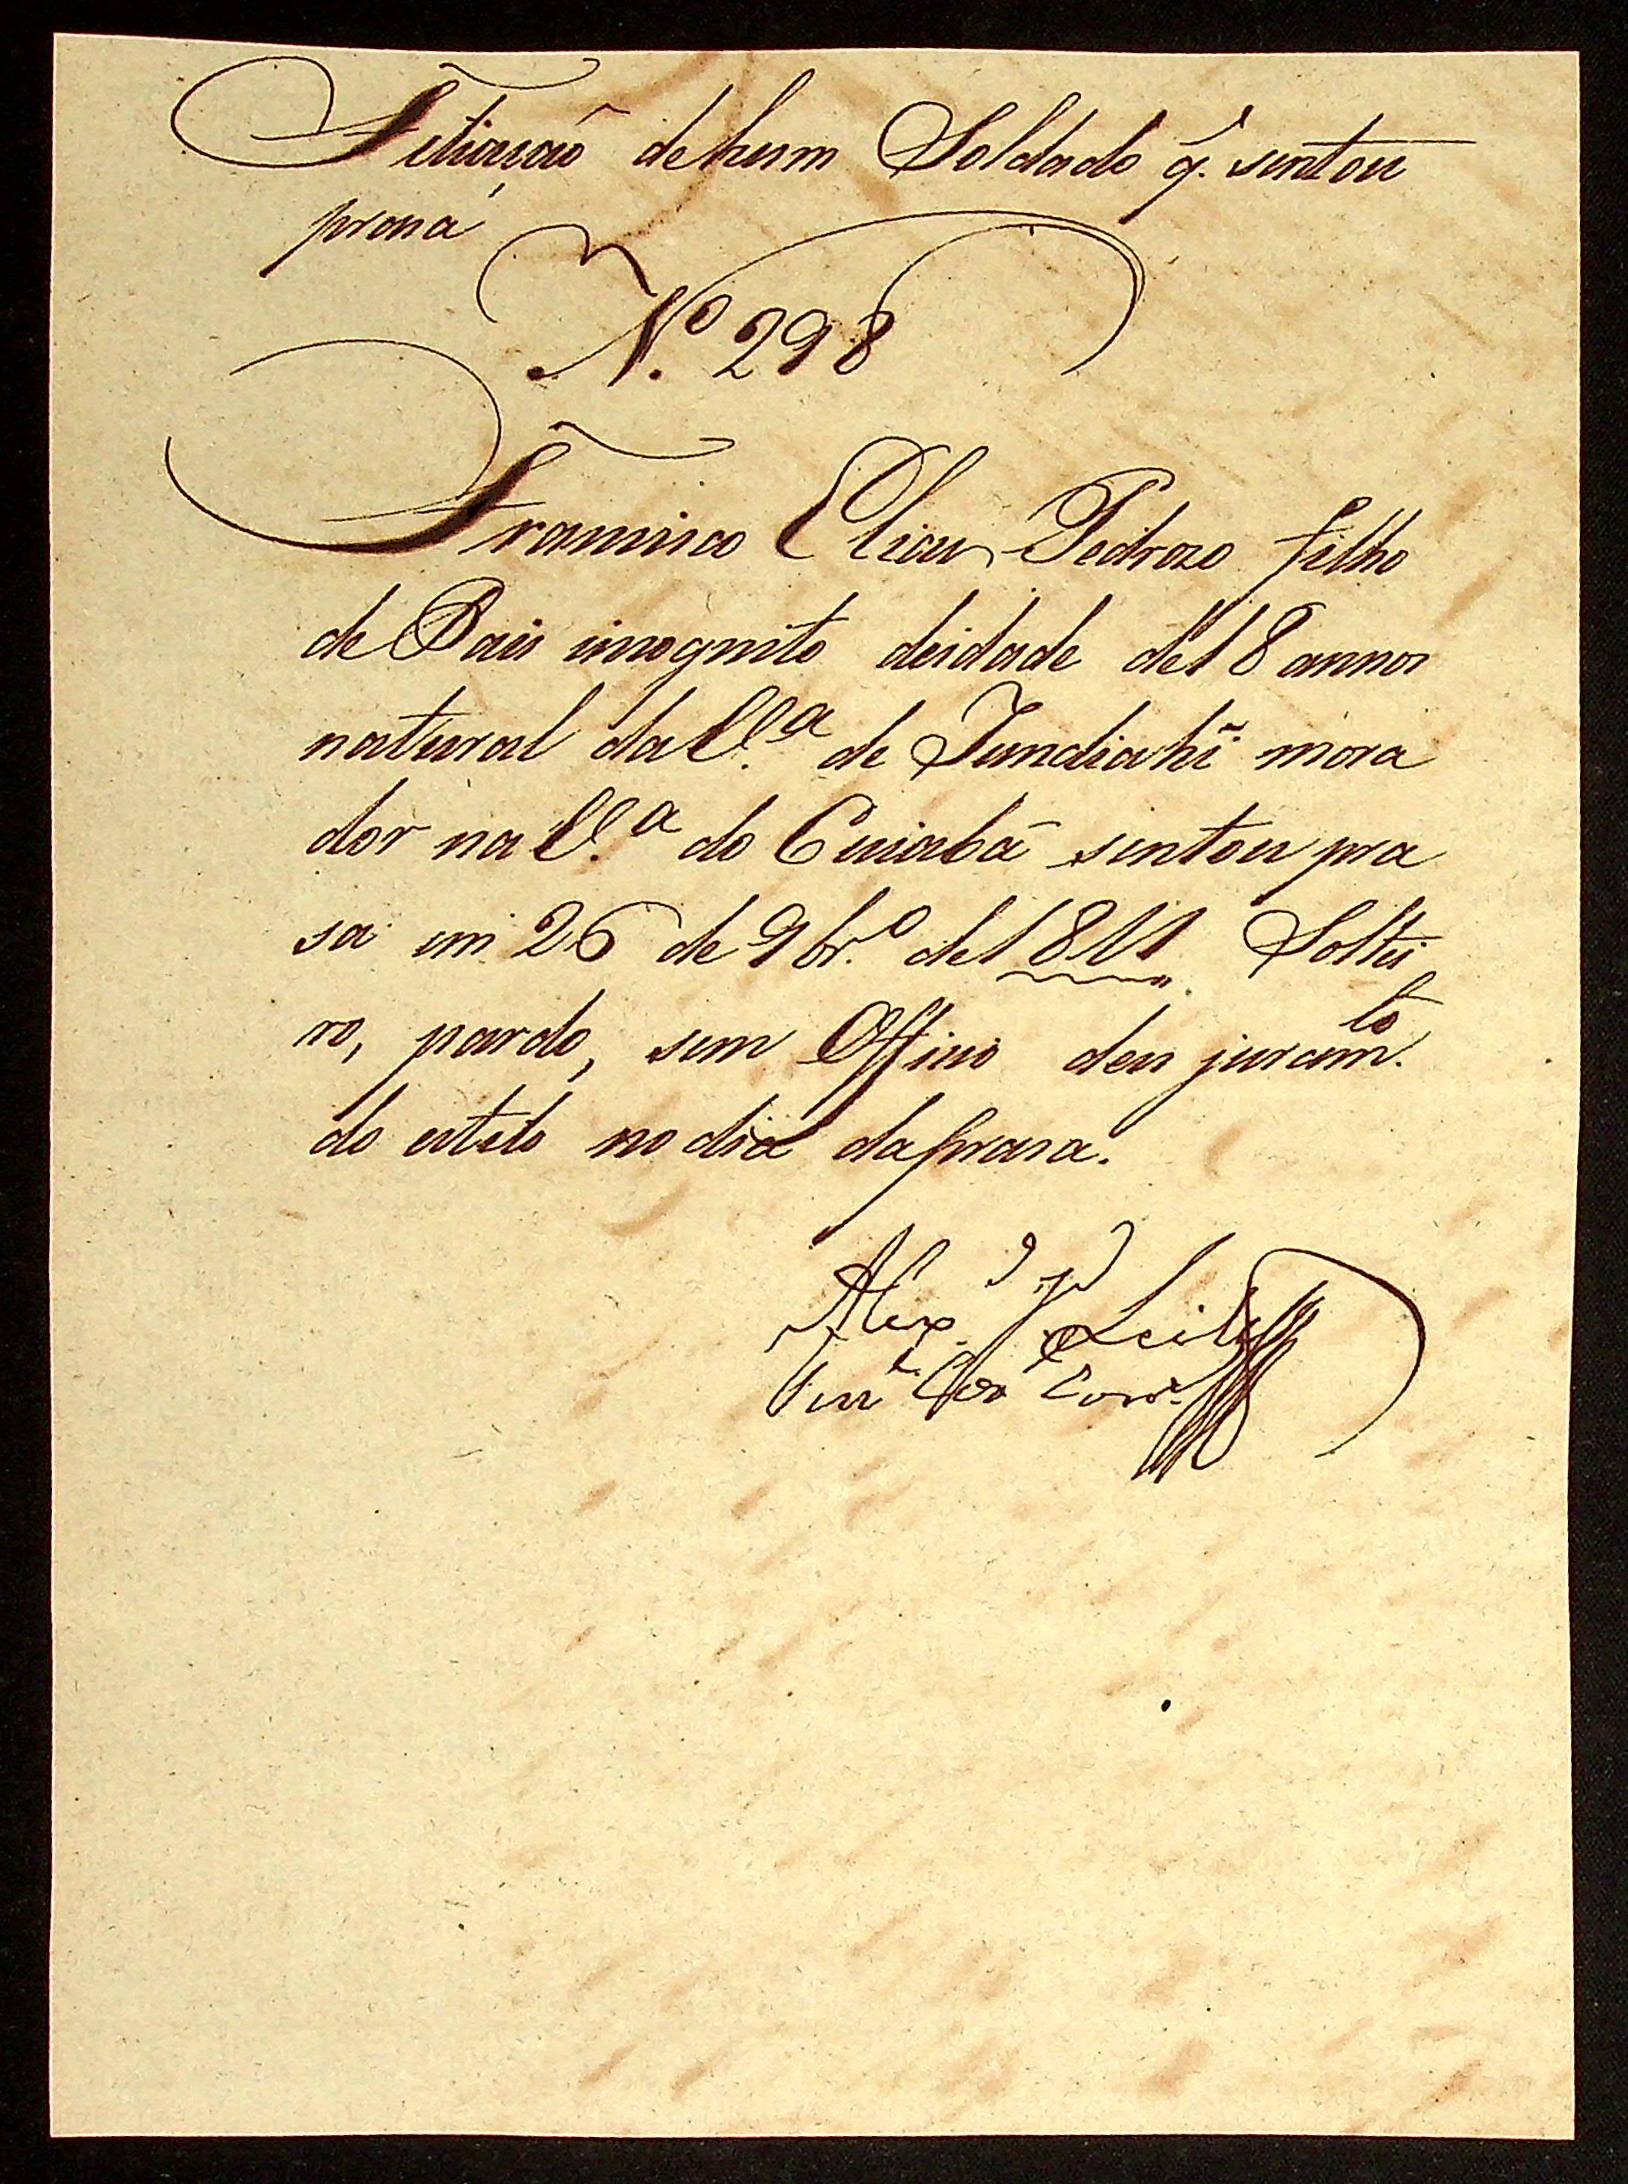 Filiação dehum Soldado q. sentou
prasa
N.º 298
Francisco Pedrozo filho
de Pais incognito deidade de 18 annos
natural da V.ª de Jundiahî mora
dor na V.ª do Cuiabá sentou pra
sa em 26 de 9br.º de 1811 Soltei
ro, pardo, sem Officio deu juram.to
do estilo no dia da prasa.
Alex.e Leite